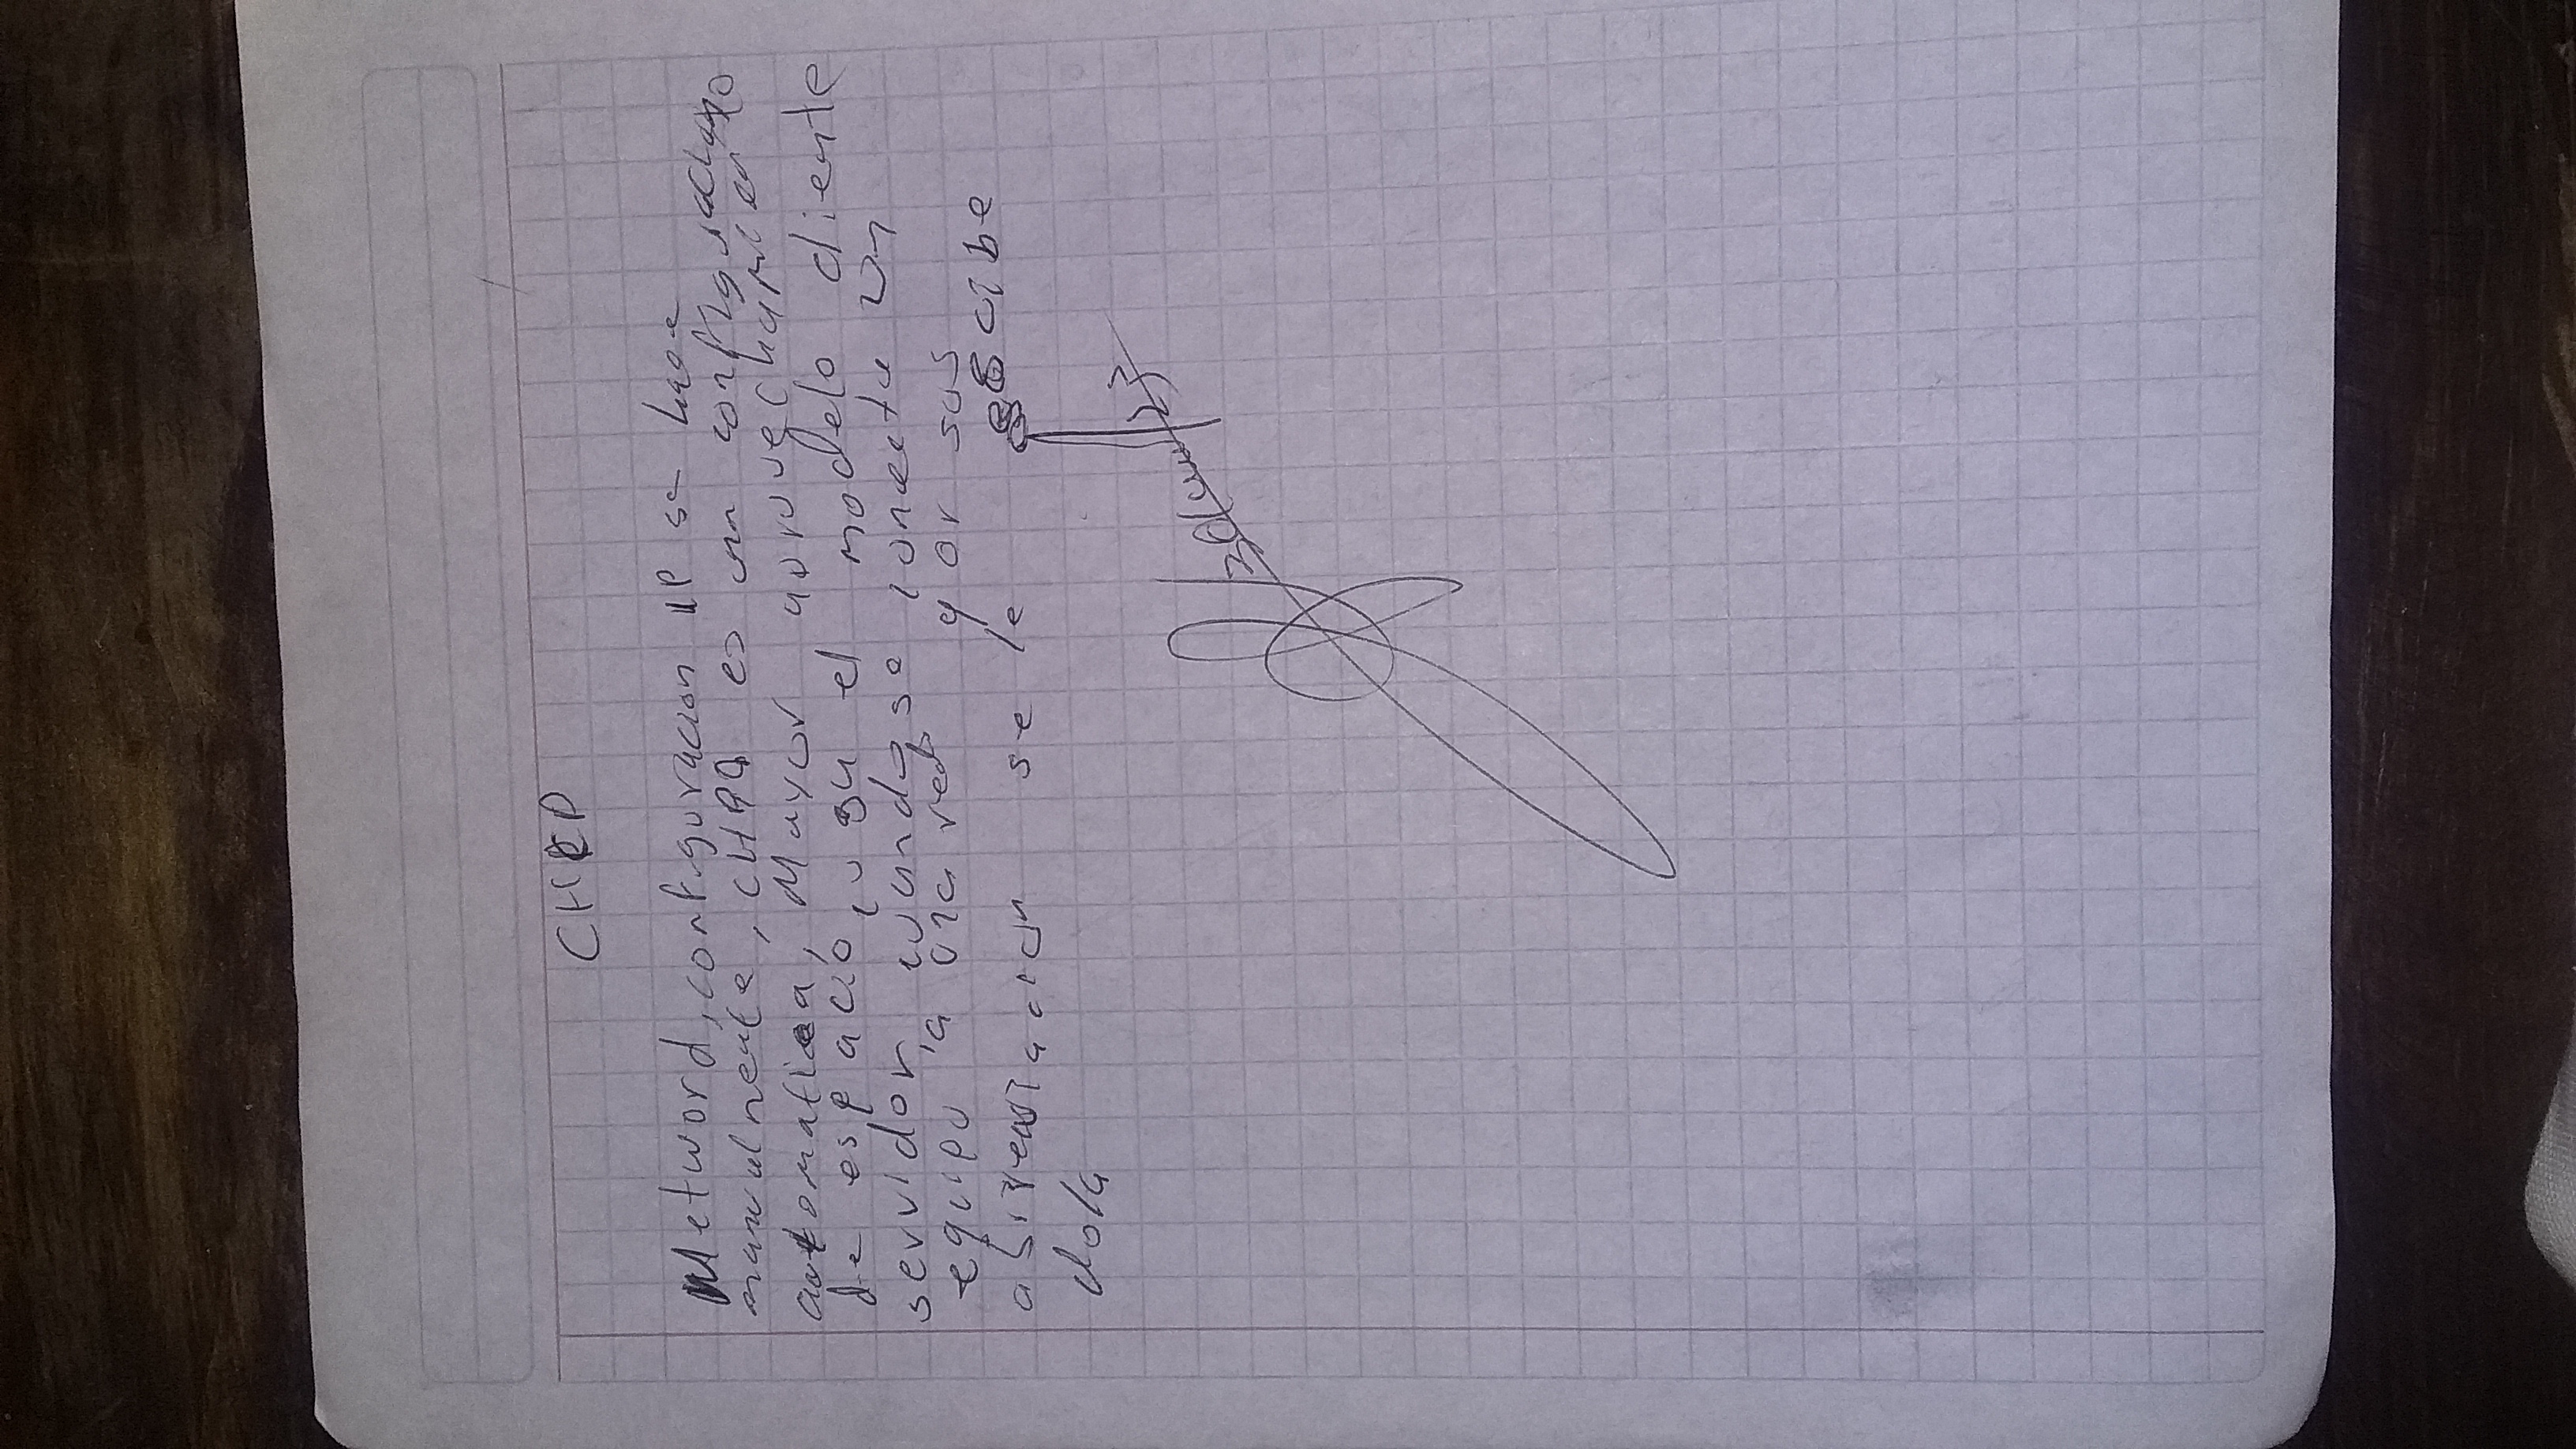 CHCP
Metword, configuracion IP se hace
manualmente, CHPD es una configuracion
automatica, Mayor aprovechamiento
de espacio, usa el modelo cliente
servidor, cuando se conecta un
equipo a una red y or sus
abreviacion se le escibe
dola